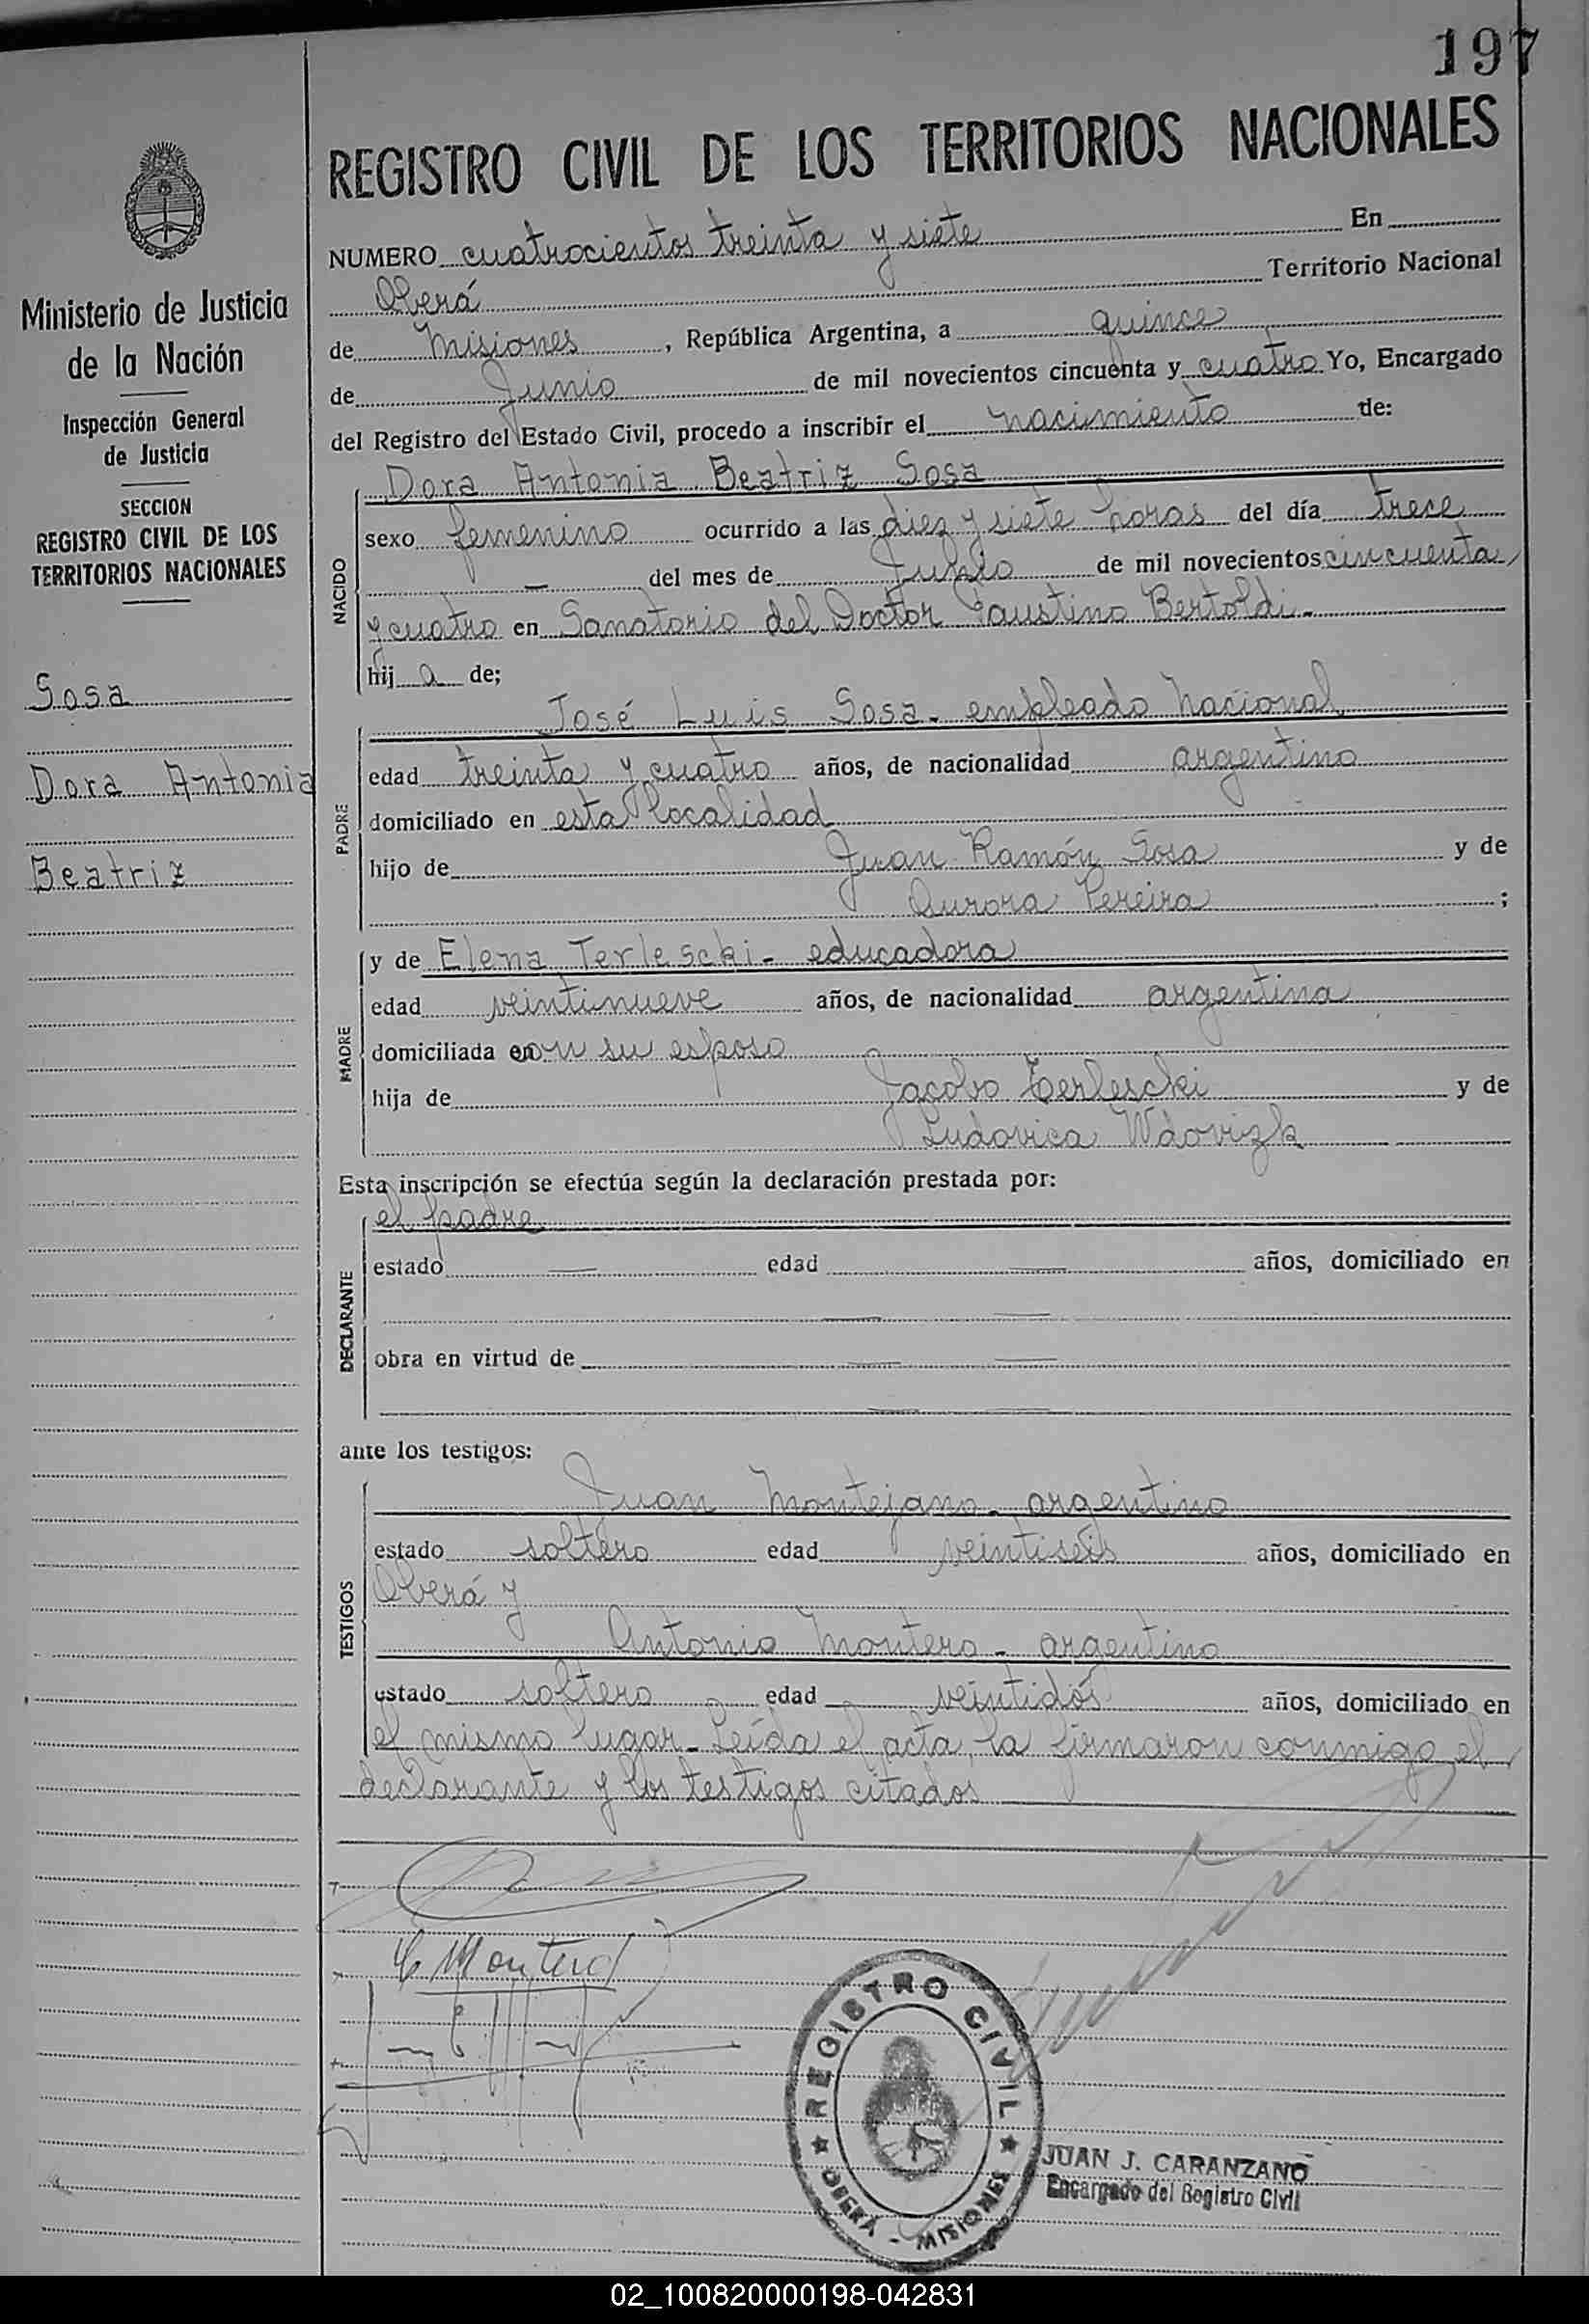 197
REGISTRO CIVIL DE LOS TERRITORIOS NACIONALES
Ministerio de Justicia
de la Nación
Inspección General
de Justicia
SECCION
REGISTRO CIVIL DE LOS
TERRITORIOS NACIONALES
Sosa
Dora Antonia
Beatriz
NUMERO cuatrocientos treinta y siete En
Oberá Territorio Nacional
de Misiones, República Argentina, a quince
de Junio de mil novecientos cincuenta y cuatro Yo, Encargado
del Registro del Estado Civil, procedo a inscribir el nacimiento de:
NACIDO
Dora Antonia Beatriz Sosa
sexo femenino ocurrido a las diez y siete horas del día trece
— del mes de Junio de mil novecientos cincuenta
y cuatro en Sanatorio del Doctor Faustino Bertoldi-
hij a de;
PADRE
José Luis Sosa - empleado nacional
edad treinta y cuatro años, de nacionalidad argentino
domiciliado en esta localidad
hijo de Juan Ramón Sosa y de
Aurora Pereira ;
MADRE
y de Elena Terlescki - educadora
edad veintinueve años, de nacionalidad argentina
domiciliada con su esposo
hija de Jacobo Terlescki y de
Ludovica Wdovizk
Esta inscripción se efectúa según la declaración prestada por:
DECLARANTE
el padre
estado — edad — años, domiciliado en
— —
obra en virtud de — —
— —
ante los testigos:
TESTIGOS
Juan Montejano - argentino
estado soltero edad veintiseis años, domiciliado en
Oberá y
Antonio Montero - argentino
estado soltero edad veintidós años, domiciliado en
el mismo lugar - Leída el acta, la firmaron conmigo el
declarante y los testigos citados
Montero
REGISTRO CIVIL
OBERÁ - MISIONES
JUAN J. CARANZANO
Encargado del Registro Civil
02_100820000198-042831